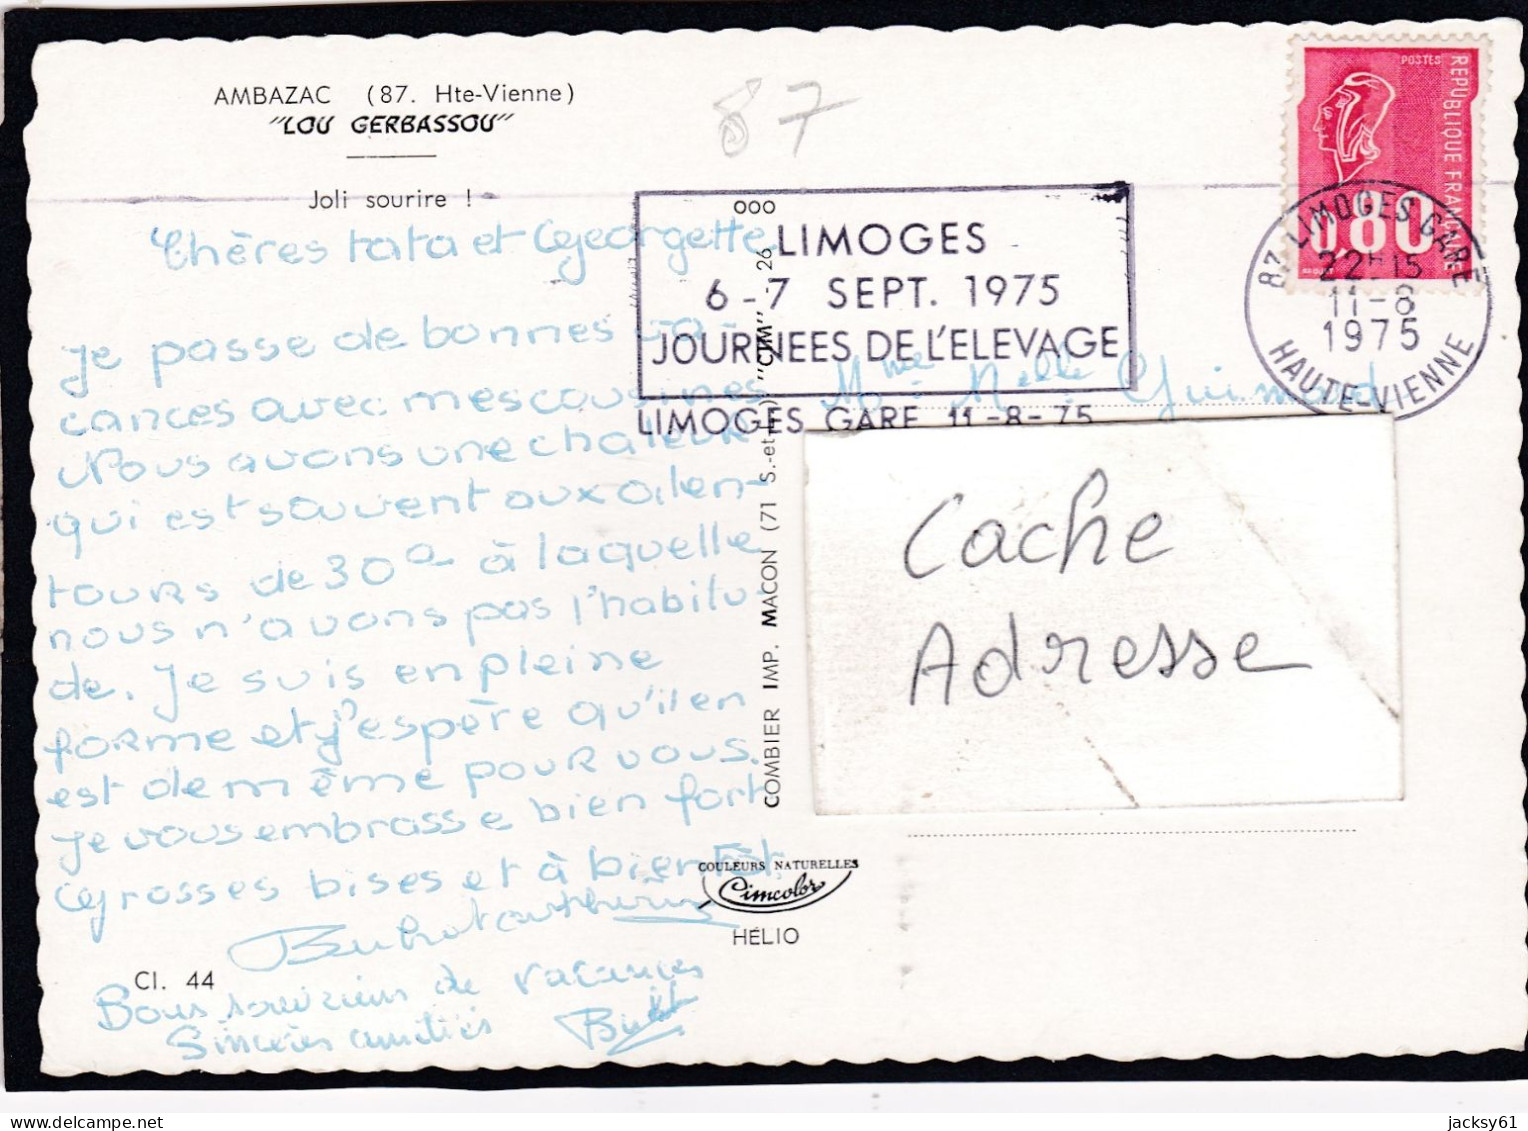 AMBAZAC (87. Hte-Vienne)
"LOU GERBASSOU"
Joli sourire !
87
Chères tata et Georgette
Je passe de bonnes va-
cances avec mes cousines
Nous avons une chaleur
qui est souvent aux alen-
tours de 30° à laquelle
nous n'avons pas l'habitu-
de. Je suis en pleine
forme et j'espère qu'il en
est de même pour vous.
Je vous embrasse bien fort
Grosses bises et à bientôt
Bons souvenirs de vacances
Sincères amitiés
Cl. 44
COMBIER IMP. MACON (71 S.-et-L.) "CIM" 26
COULEURS NATURELLES
Cimcolor
HÉLIO
000
LIMOGES
6-7 SEPT. 1975
JOURNEES DE L'ELEVAGE
LIMOGES GARE 11-8-75
POSTES
REPUBLIQUE FRANCAISE
0,80
87 LIMOGES GARE
22H15
11-8
1975
HAUTE-VIENNE
Mme Melle Guimard
Cache
Adresse
jacksy61